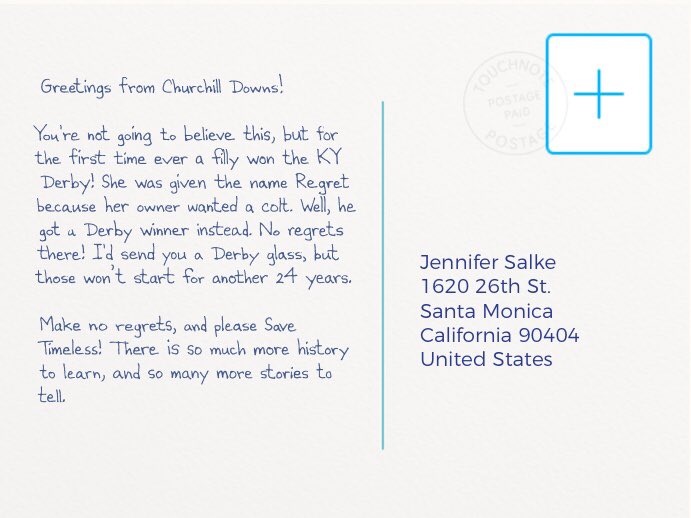 Greetings from Churchill Downs!
You're not going to believe this, but for
the first time ever a filly won the KY
Derby! She was given the name Regret
because her owner wanted a colt. Well, he
got a Derby winner instead. No regrets
there! I'd send you a Derby glass, but
those won't start for another 24 years.
Make no regrets, and please Save
Timeless! There is so much more history
to learn, and so many more stories to
tell.
TOUCHNOTE
POSTAGE
PAID
POSTAGE
Jennifer Salke
1620 26th St.
Santa Monica
California 90404
United States